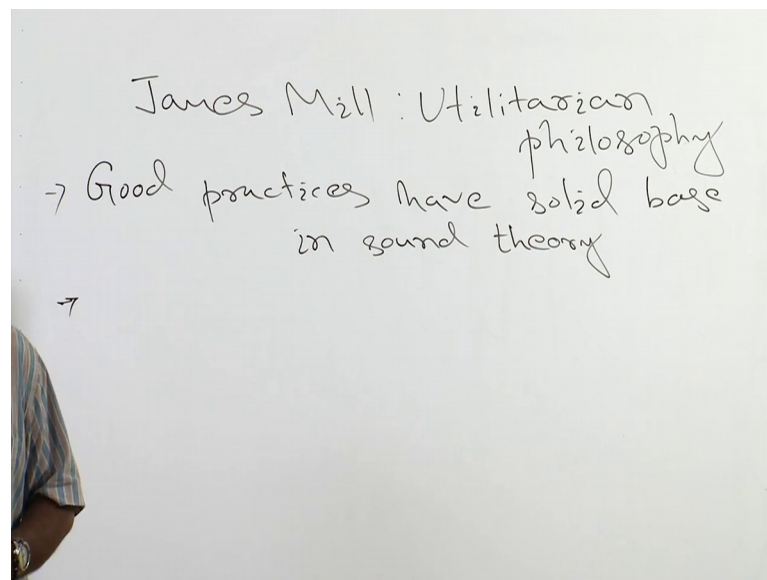 James Mill : Utilitarian
philosophy
→ Good practices have solid base
in sound theory
→